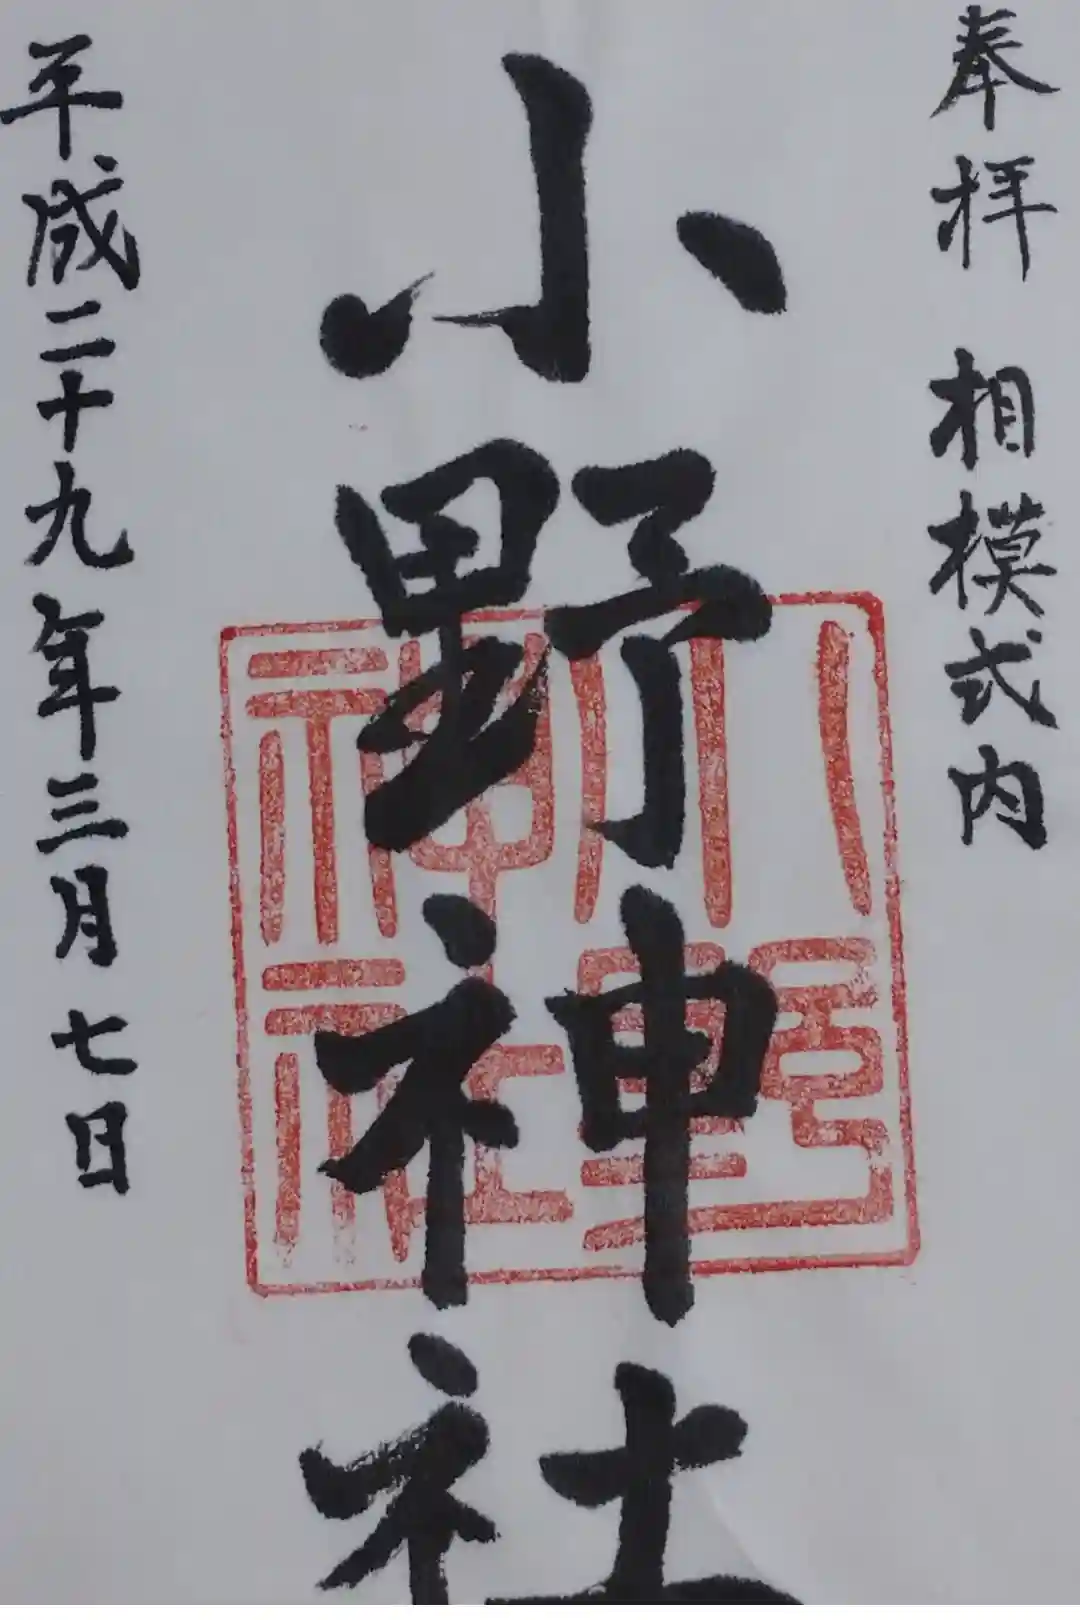 奉拝 相模式内
小野神社
小野神社
平成二十九年三月七日